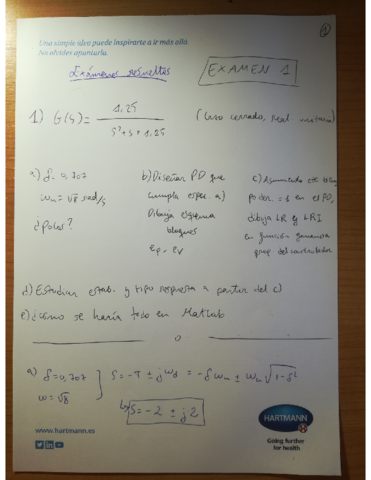 Una simple idea puede inspirarte a ir más allá.
No olvides apuntarla.
Exámenes resueltos
EXAMEN 1
1) G(s) = 1,25 / s²+s+1,25 (lazo cerrado, real unitaria)
a) δ = 0,707
ωn = √8 rad/s
¿Polos?
b) Diseñar PD que
cumpla espec. a)
Dibuja esquema
bloques
ep - ev
c) Asumiendo
en el PD,
dibuja LR y LRI
en función ganancia
prop. del controlador
d) Estudiar estab. y tipo respuesta a partir del c)
e) ¿Cómo se haría todo en Matlab
a) δ = 0,707
ω = √8
s = -σ ± jωd = -δωn ± ωn√1-δ²
s = -2 ± j2
HARTMANN
www.hartmann.es
Going further
for health